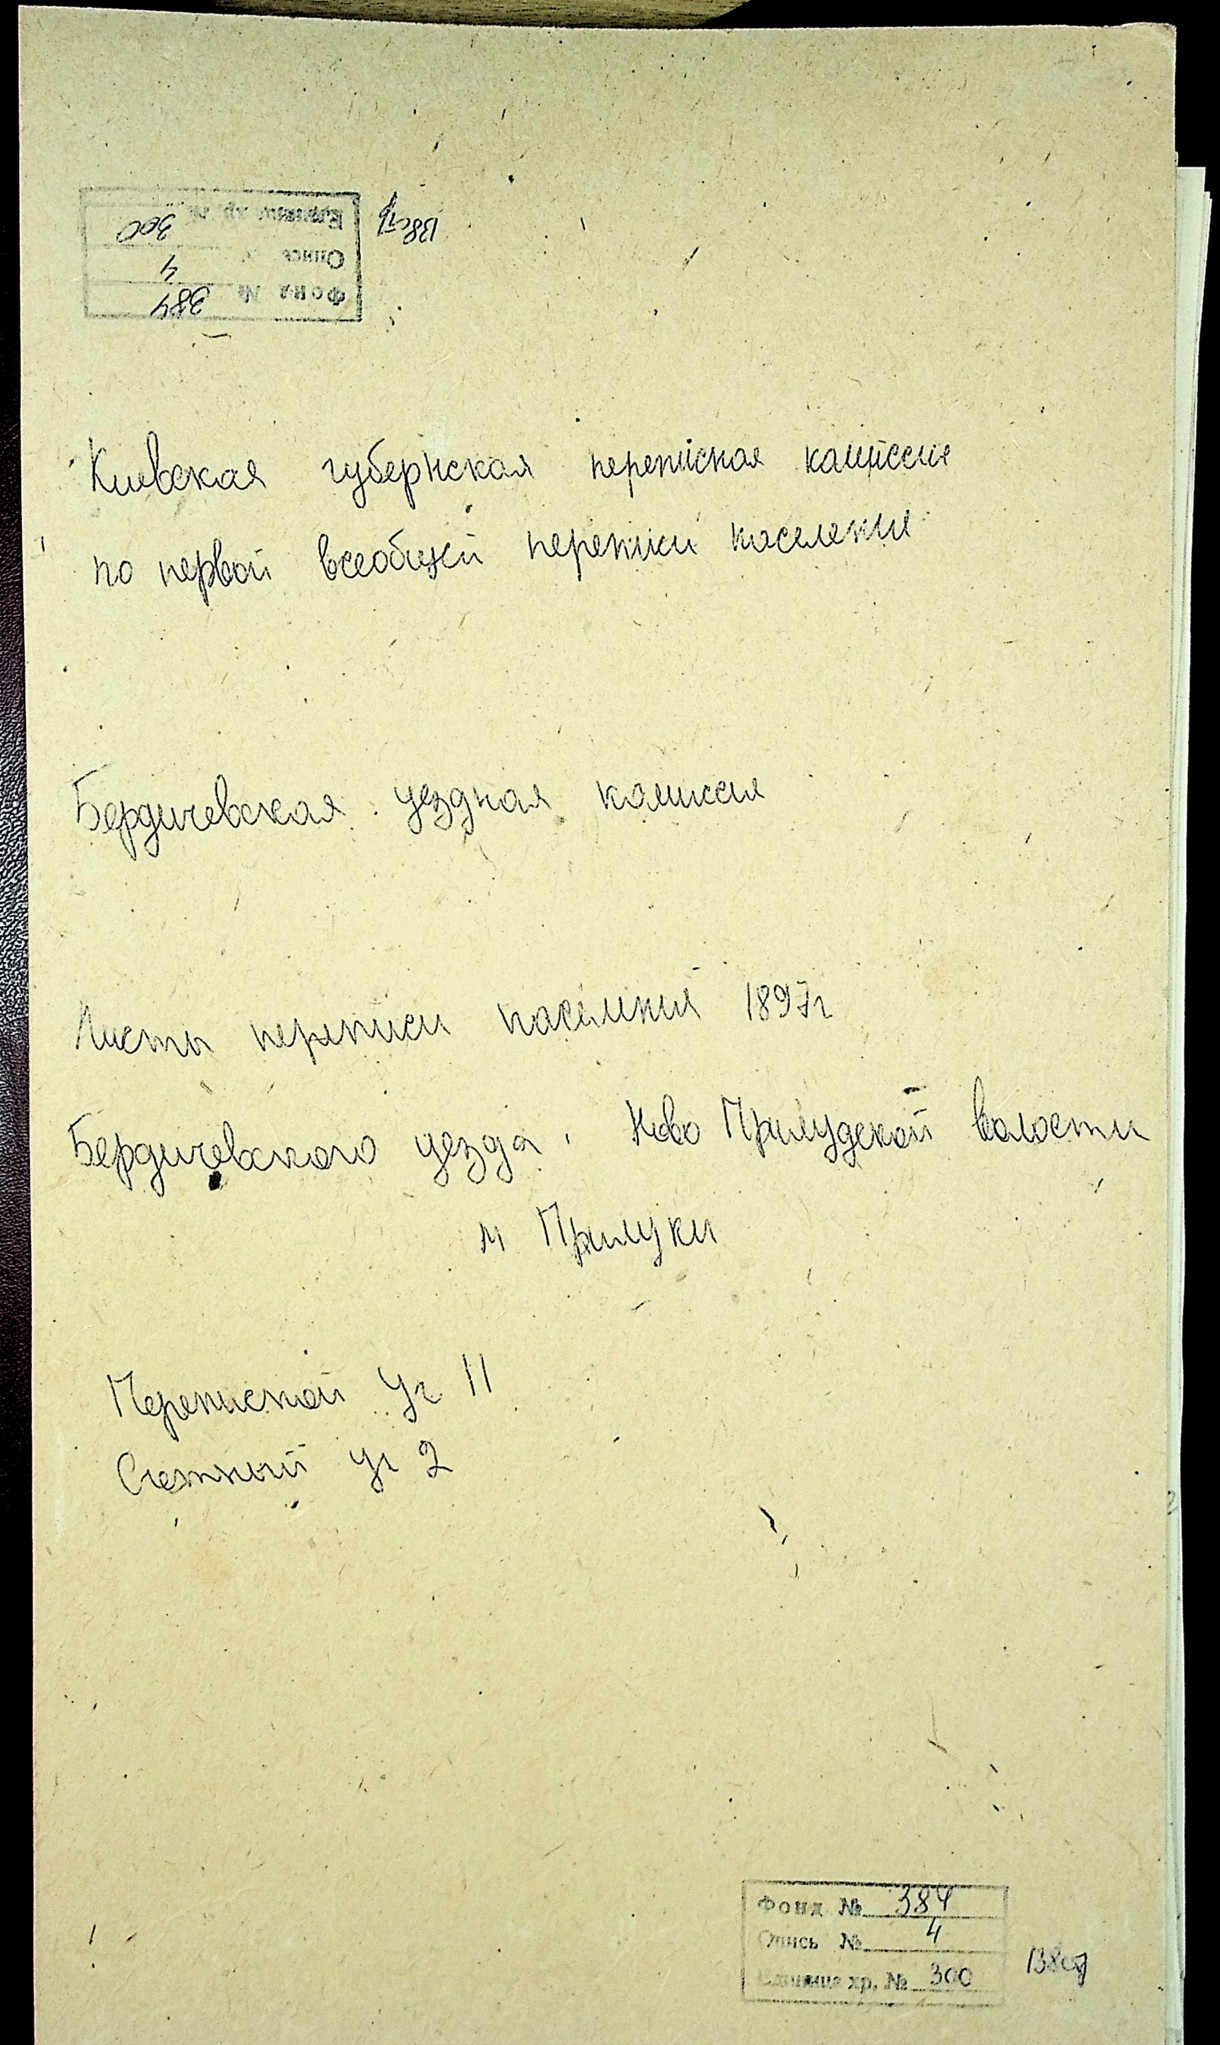 Фонд № 384
Опись 4
Единиц хр. № 300
138стр
Киевская губернская переписная комиссия
по первой всеобщей переписи населения
Бердичевская уездная комиссия
Листы переписи населения 1897г
Бердичевского уезда. Ново Прилудской волости
м Прилуки
Переписной уч 11
Счетный уч 2
Фонд № 384
Опись № 4
Единица хр. № 300
138стр